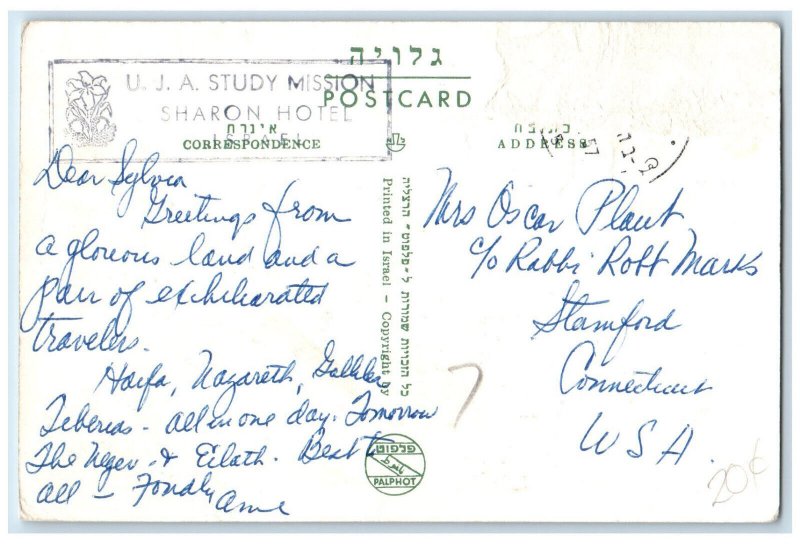 גלויה
POSTCARD
U. J. A. STUDY MISSION
SHARON HOTEL
ISRAEL
אינרת
CORRESPONDENCE
כתובת
ADDRESS
57
Dear Sylvia
Greetings from
a glorious land and a
pair of exhilarated
travelers.
Haifa, Nazareth, Gallilee,
Tiberias - all in one day. Tomorrow
The Negev & Eilath. Best to
all - Fondly
Anne
כל הזכויות שמורות ל-"פלפוט" הרצליה
Printed in Israel - Copyright by
פלפוט
PALPHOT
Mrs Oscar Plaut
c/o Rabbi Robt Marks
Stamford
Connecticut
USA.
7
20¢